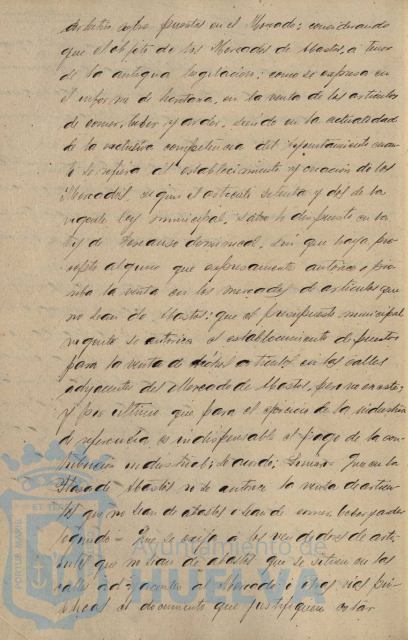 arbitrio sobre puestos en el Mercado; considerando
que el objeto de los Mercados de Abastos, a tenor
de la antigua legislacion, como se expresa en
el informe de Contaría, es la venta de los articulos
de comer, beber y arder, siendo en la actualidad
de la exclusiva competencia del Ayuntamiento cuan
to se refiera al establecimiento y creación de los
Mercados, segun el articulo setenta y dos de la
vigente ley municipal, salvo lo dispuesto en la
ley de descanso dominical, sin que haya pre
cepto alguno que expresamente autorice o prohi
ba la venta en los mercados de articulos que
no sean de Abastos; que el presupuesto municipal
vigente se autoriza el establecimiento de puestos
para la venta de dichos articulos en las calles
adyacentes del Mercado de Abastos, pero no en este;
Y por último que para el ejercicio de la industria
de referencia es indispensable el pago de la con
tribución industrial; acordó: Primero Que en la
Plaza de Abastos no se autorice la venta de articu
los que no sean de abastos o sean de comer, beber y arder
Segundo - Que se exija a los vendedores de arti
culos que no sean de abastos que se sitúen en las
calles adyacentes al Mercado ú otras vias pú
blicas el documento que justifiquen estar
PORTUS MARIS
ET TERRÆ
Ayuntamiento de
HUELVA